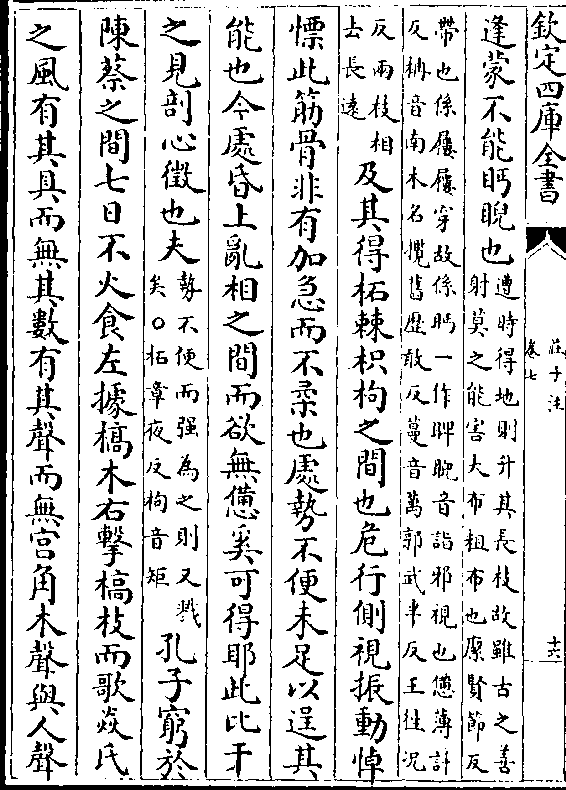 欽定四庫全書
莊子注
卷七
十六
逢蒙不能眄睨也遭時得地則升其長枝故雖古之善
射莫之能害大布粗布也縻賢節反
帶也係履履穿故係眄一作睥睨音詣邪視也憊薄計
反枏音南木名攬舊歷敢反蔓音萬郭武半反王往況
反兩枝相
去長遠
及其得柘棘枳枸之間也危行側視振動悼
慄此筋骨非有加急而不柔也處勢不便未足以逞其
能也今處昏上亂相之間而欲無憊奚可得耶此比干
之見剖心徵也夫勢不便而强為之則又戮
矣○柘章夜反枸音矩
孔子窮於
陳蔡之間七日不火食左據槁木右擊槁枝而歌焱氏
之風有其具而無其數有其聲而無宮角木聲與人聲